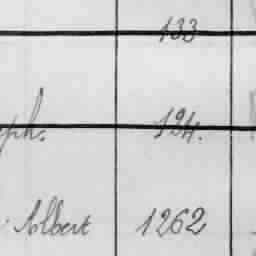 133
ph. 124.
Albert 1262